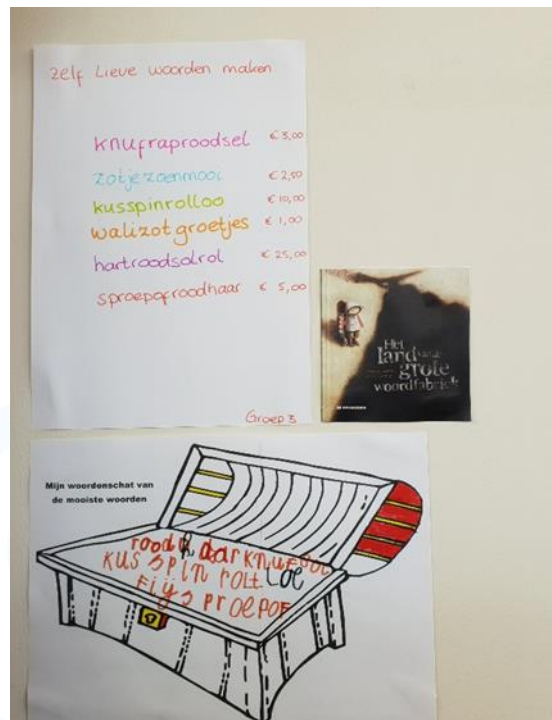 zelf Lieve woorden maken
knufraproodsel € 3,00
zotjezoenmooi € 2,50
kusspinrolloo € 10,00
walizotgroetjes € 1,00
hartroodsolrol € 25,00
sproepofroodhaar € 5,00
Groep 3
Het
land van de
grote
woordfabriek
Mijn woordenschat van
de mooiste woorden
kus spin roll